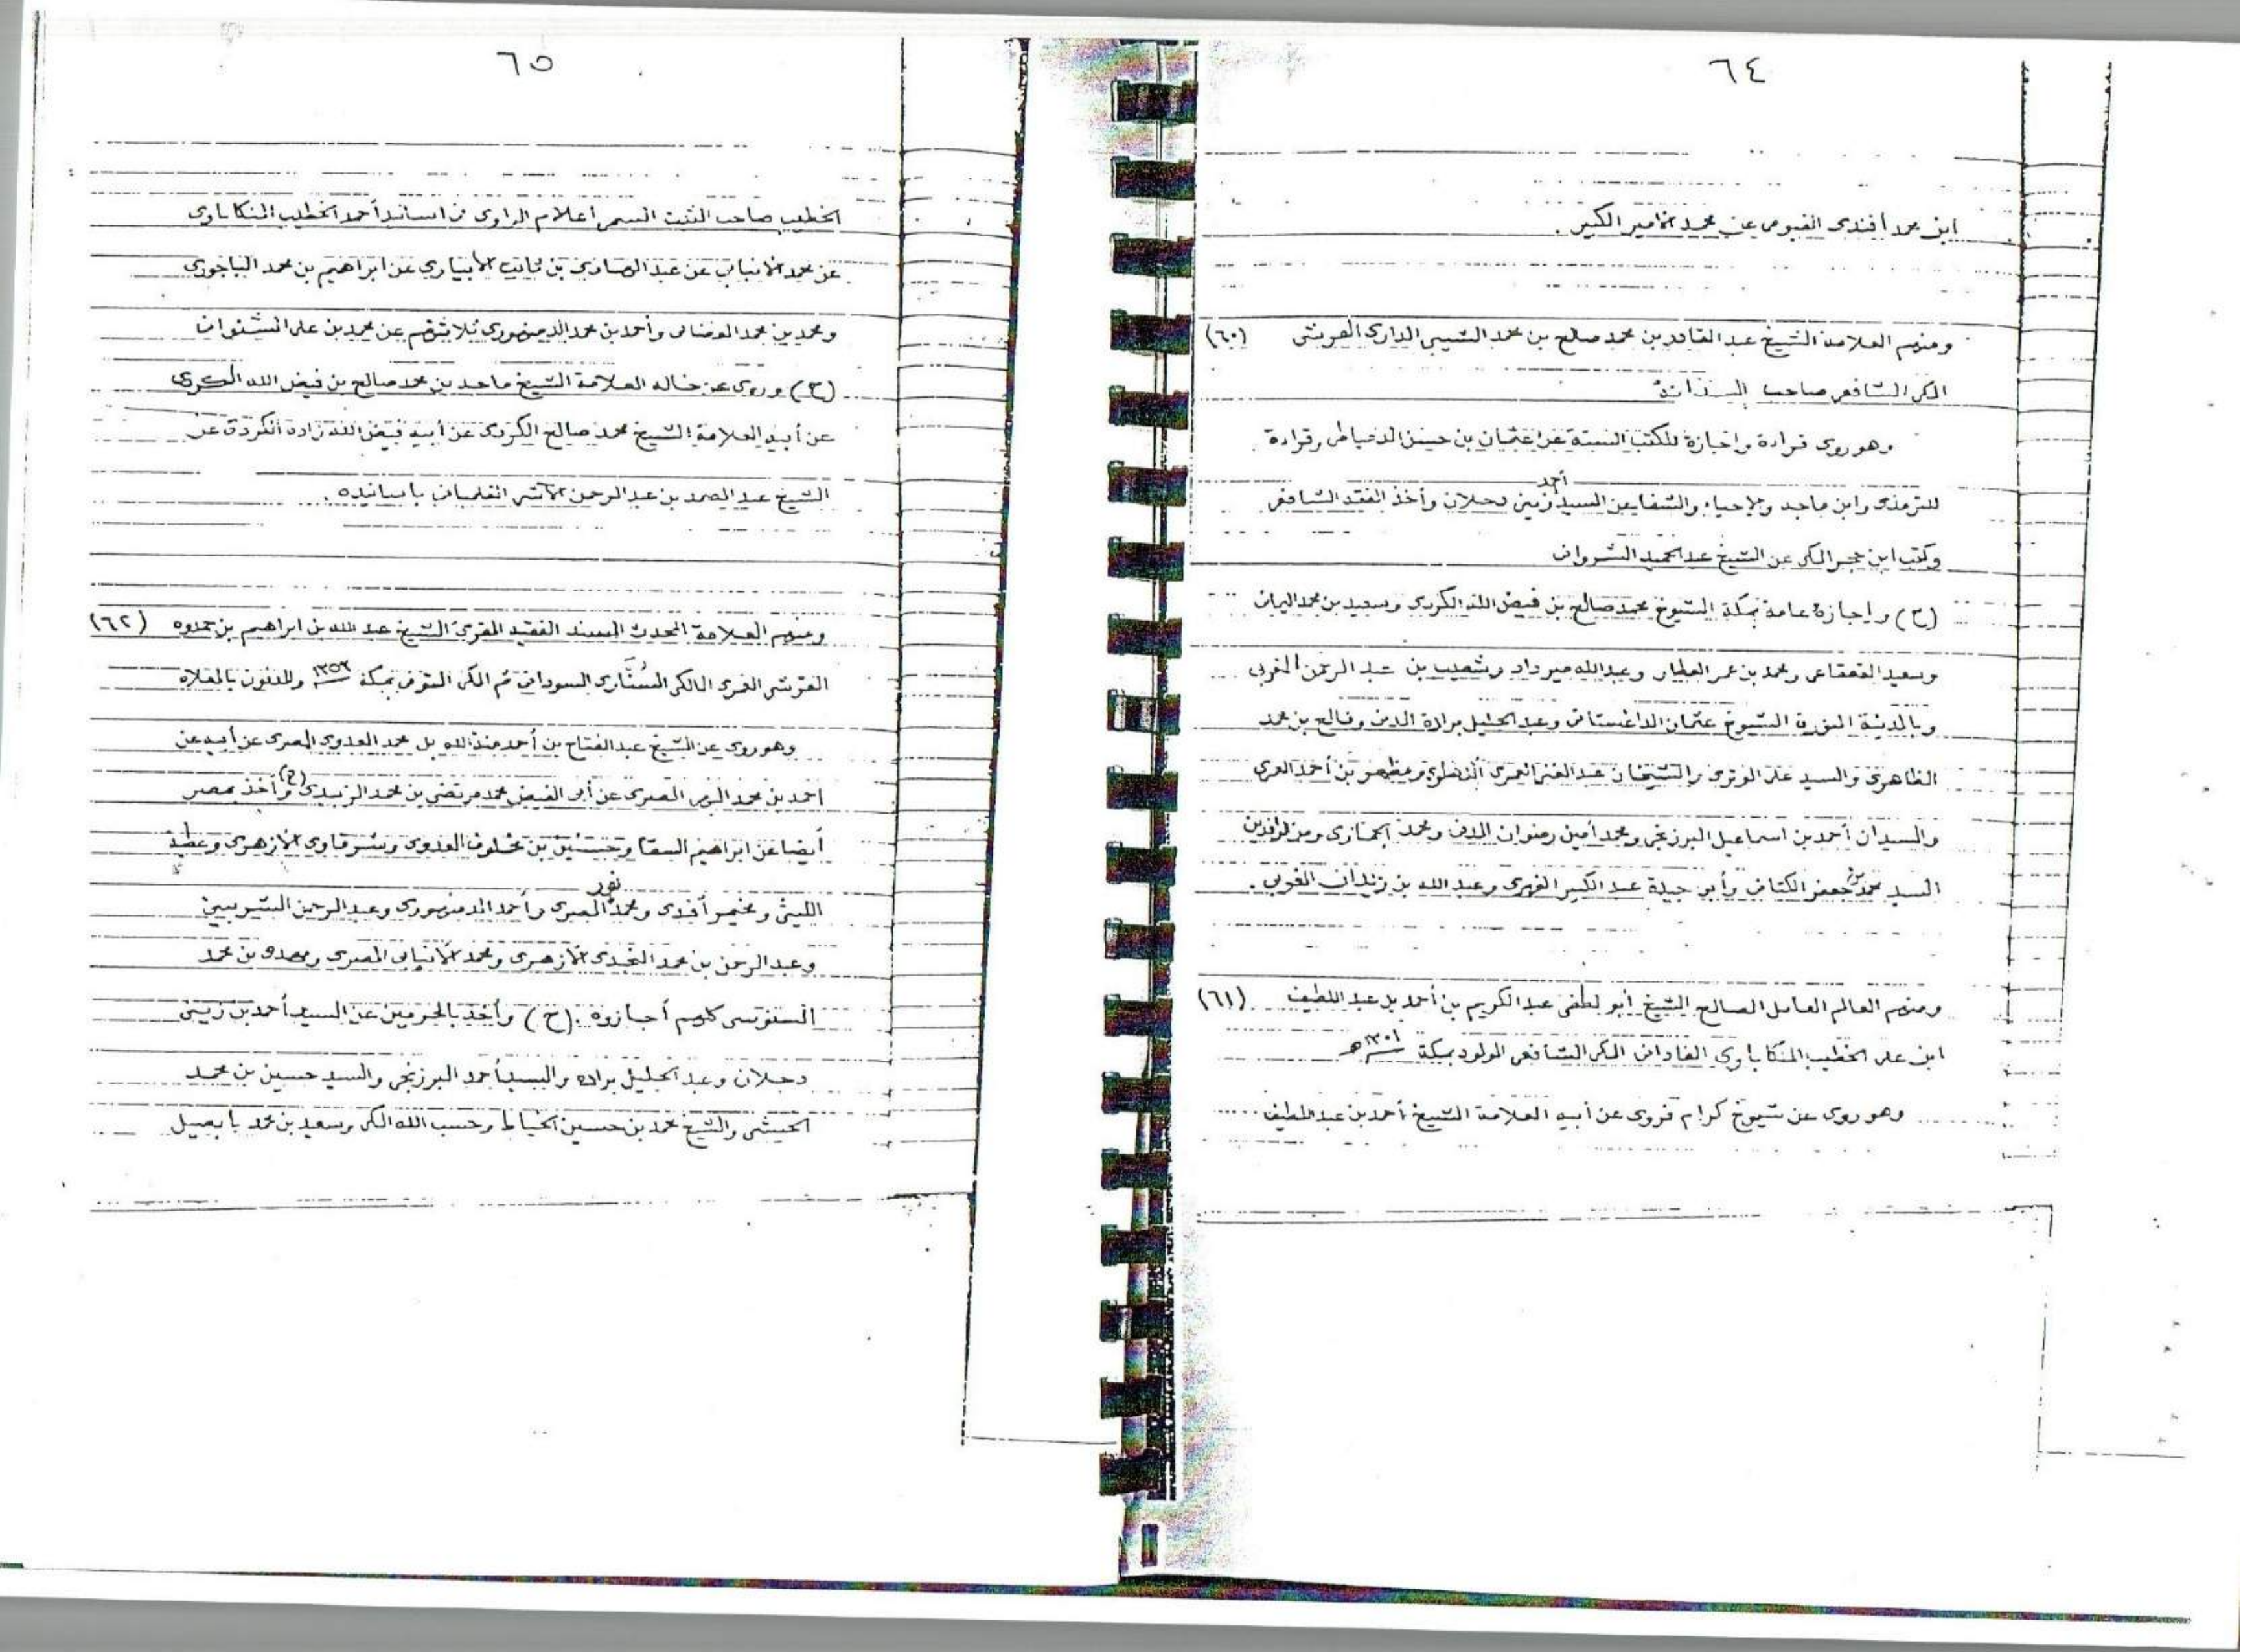 ٦٤
ابن محمد أفندى الفيومى عن محمد الأمير الكبير .
ومنهم العلامة الشيخ عبد القادر بن محمد صالح بن محمد الشيبى الدارى القرشى (٦٠)
المكى الشافعى صاحب السدانة
وهو روى قراءة واجازة للكتب الستة عن عثمان بن حسن الدمياطى وقراءة
للترمذى وابن ماجه والإحياء والشفا عن السيد أحمد زينى دحلان وأخذ الفقه الشافعى
وكتب ابن حجر المكى عن الشيخ عبد الحميد الشروانى
(ح) واجازة عامة بمكة الشيوخ محمد صالح بن فيض الله الكردى وسعيد بن محمد اليمانى
وسعيد القعقاعى ومحمد بن عمر العطار وعبد الله ميرداد وشعيب بن عبد الرحمن المغربى
وبالمدينة المنورة الشيوخ عثمان الداغستانى وعبد الجليل برادة المدنى وفالح بن محمد
الظاهرى والسيد على الوترى والشيخان عبد الغنى العمرى ومظهر بن أحمد العمرى
والسيدان أحمد بن اسماعيل البرزنجى ومحمد أمين رضوان المدنى ومحمد ومن الوافدين
السيد محمد بن جعفر الكتانى وأبى جيدة عبد الكبير الفهرى وعبد الله بن زيدان المغربى .
ومنهم العالم العامل الصالح الشيخ أبو لطفى عبد الكريم بن أحمد بل عبد اللطيف (٦١)
ابن على الخطيب المنكاباوى الفادانى المكى الشافعى المولود بمكة سنة ١٣٠١ هـ
وهو روى عن شيوخ كرام فروى عن أبيه العلامة الشيخ أحمد بن عبد اللطيف
٦٥
الخطيب صاحب الثبت المسمى أعلام الراوى فى اسانيد أحمد الخطيب المنكاباوى
عن محمد الأنبابى عن عبد الهادى بن الأبيارى عن ابراهيم بن محمد الباجورى
ومحمد بن محمد الفضالى وأحمد بن محمد الدمنهورى ثلاثتهم عن محمد بن على الشنوانى
(ح) وروى عن خاله العلامة الشيخ ماجد بن محمد صالح بن فيض الله الكردى
عن أبيه العلامة الشيخ محمد صالح الكردى عن أبيه فيض الله زاده الكردى عن
الشيخ عبد الصمد بن عبد الرحمن الآشى الفلمبانى باسانيده .
ومنهم العلامة المحدث المسند الفقيه المقرئ الشيخ عبد الله بن ابراهيم بن حمدوه (٦٢)
القرشى المالكى السنارى السودانى ثم المكى المتوفى بمكة سنة ١٣٥٢ والمدفون بالمعلاه
وهو روى عن الشيخ عبد الفتاح بن أحمد بل محمد العدوى المصرى عن أبيه عن
احمد بن محمد المصرى عن أبى الفيض محمد مرتضى بن محمد الزبيدى (ح) وأخذ بمصر
أيضا عن ابراهيم السقا وحسنين بن مخلوف العدوى وشرقاوى الأزهرى وعطية
الليثى وأفندى ومحمد نور المصرى وأحمد الدمنهورى وعبد الرحمن الشربينى
وعبد الرحمن بن محمد الأزهرى ومحمد الأنبابى المصرى ومهدى بن محمد
السنوسى كلهم أجازوه . (ح) وأخذ بالحرمين عن السيد أحمد بن زينى
دحلان وعبد الجليل براده والسيد أحمد البرزنجى والسيد حسين بن محمد
الحبشى والشيخ محمد بن حسين الخياط وحسب الله المكى وسعيد بن محمد بابصيل